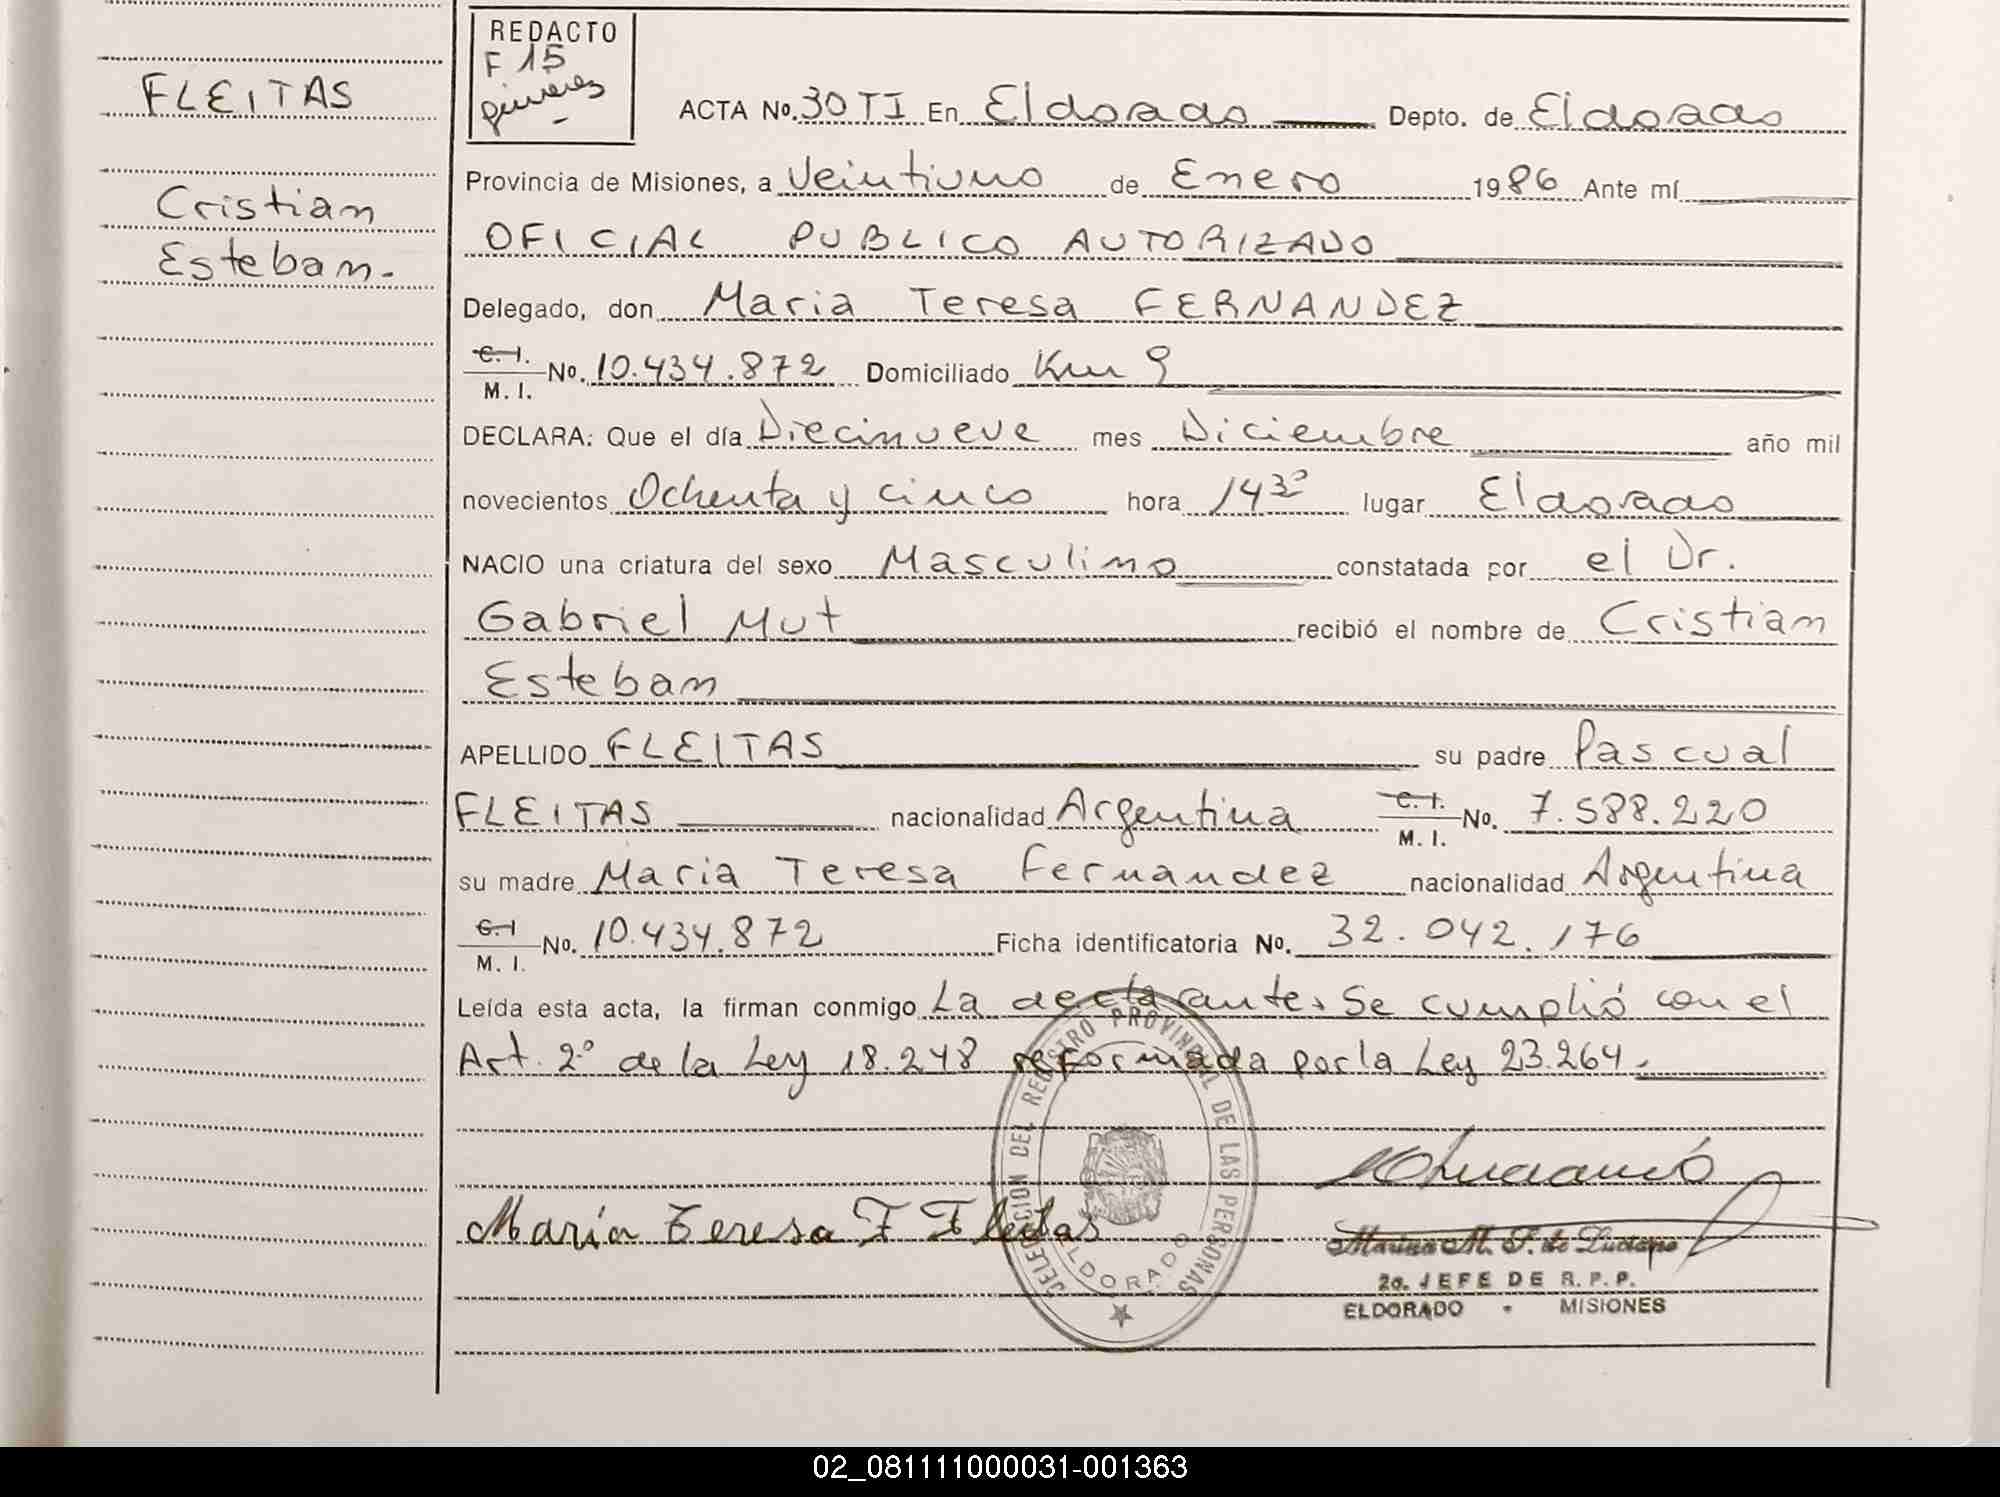 REDACTO
F 15
FLEITAS
Cristian
Esteban.-
ACTA No. 30 TI En Eldorado Depto. de Eldorado
Provincia de Misiones, a Veintiuno de Enero 1986 Ante mí
OFICIAL PUBLICO AUTORIZADO
Delegado, don Maria Teresa FERNANDEZ
C. I.
M. I. No. 10.434.872 Domiciliado Km 9
DECLARA: Que el día Diecinueve mes Diciembre año mil
novecientos Ochenta y cinco hora 14³⁰ lugar Eldorado
NACIO una criatura del sexo Masculino constatada por el Dr.
Gabriel Mut recibió el nombre de Cristian
Esteban
APELLIDO FLEITAS su padre Pascual
FLEITAS nacionalidad Argentina C. I. M. I. No. 7.588.220
su madre Maria Teresa Fernandez nacionalidad Argentina
C. I
M. I. No. 10.434.872 Ficha identificatoria No. 32.042.176
Leída esta acta, la firman conmigo La declarante. Se cumplió con el
Art. 2º de la Ley 18.248 reformada por la Ley 23.264.-
María Teresa F Fleitas
DELEGACION DEL REGISTRO PROVINCIAL DE LAS PERSONAS
ELDORADO
Marina M. F. de Luciano
2a. JEFE DE R. P. P.
ELDORADO - MISIONES
02_081111000031-001363